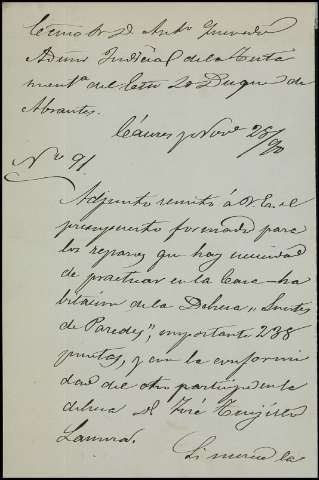 Excmo Sr. D. Anto Quevedo
Admor Judicial de la Testa
mentª del Exmo Sr Duque de
Abrantes.
Cáceres y Nove 28/90
No 91
Adjunto remito á V. E. el
presupuesto formado para
los reparos que hay necesidad
de practicar en la Casa-ha
bitacion de la Dehesa "Suertes
de Paredes", importante 238
psetas, y con la conformi
dad del otro participe de la
dehesa D. José Trujillo
Lanuza.
Si merece la